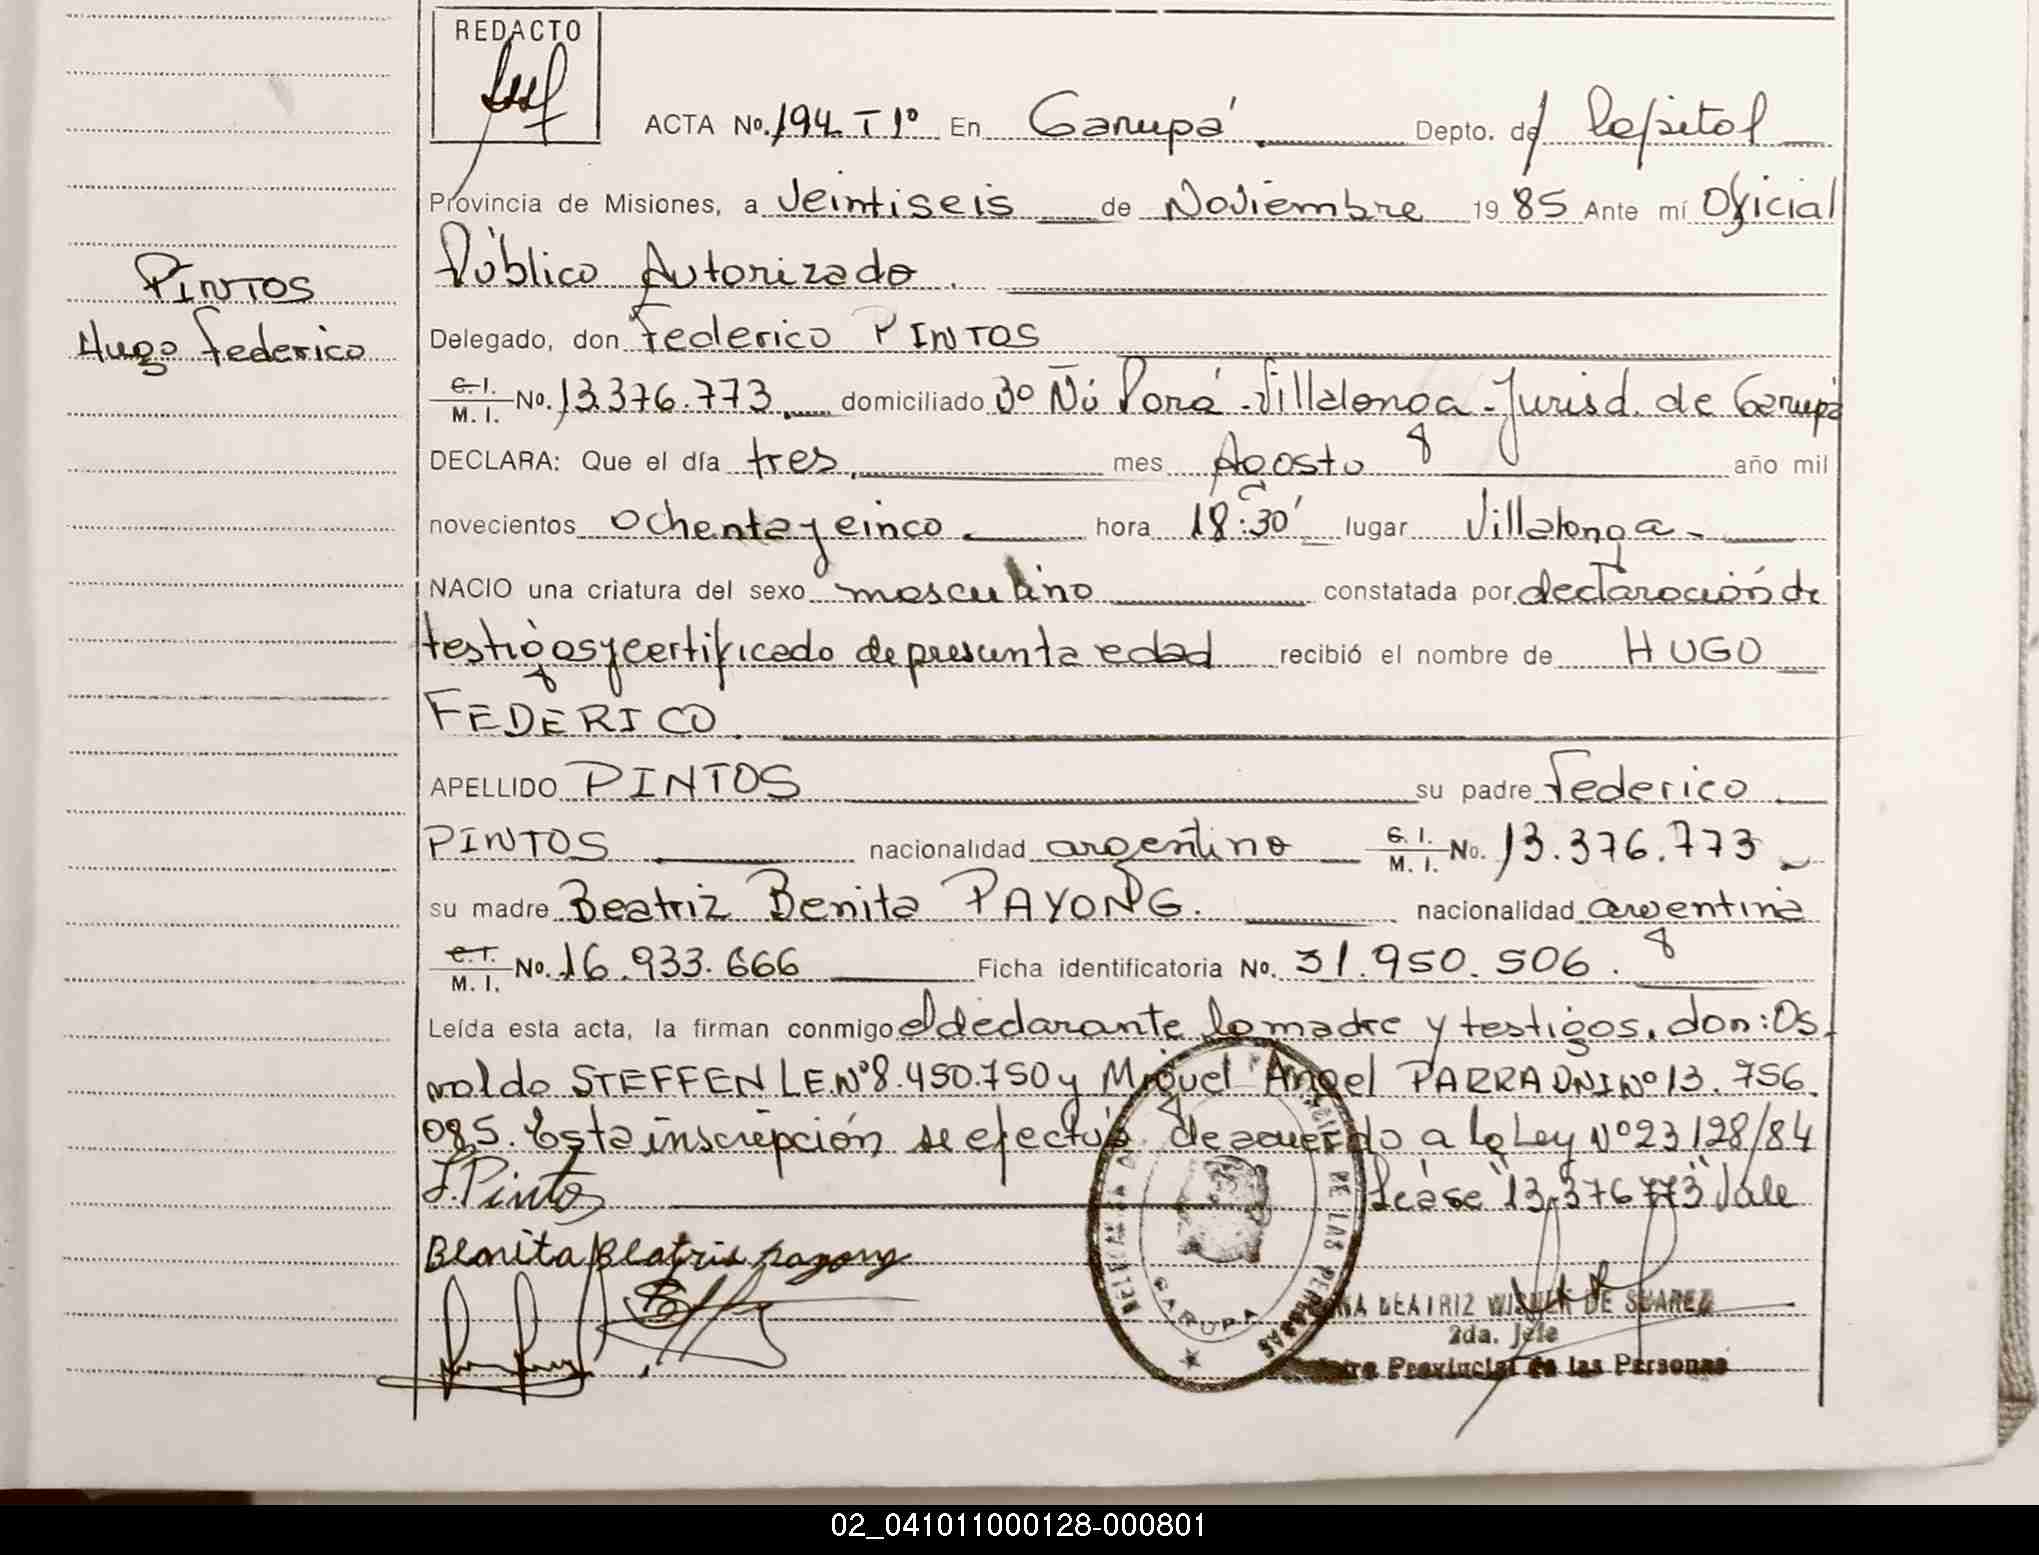 REDACTO
ACTA No. 194 T 1º En Garupá Depto. de Capital
Provincia de Misiones, a veintiseis de Noviembre 1985 Ante mí Oficial
Público Autorizado.
PINTOS
Hugo Federico
Delegado, don Federico PINTOS
C. I. M. I. No. 13.376.773 domiciliado Bº Ñú Porá - Villalonga - Jurisd. de Garupá
DECLARA: Que el día tres mes Agosto año mil
novecientos ochenta y cinco hora 18:30' lugar Villalonga -
NACIO una criatura del sexo masculino constatada por declaración de
testigos y certificado de presunta edad recibió el nombre de HUGO
FEDERICO.
APELLIDO PINTOS su padre Federico
PINTOS nacionalidad argentino C. I. M. I. No. 13.376.773
su madre Beatriz Benita PAYONG. nacionalidad argentina
C. I. M. I. No. 16.933.666 Ficha identificatoria No. 31.950.506.
Leída esta acta, la firman conmigo el declarante la madre y testigos, don: Os
valdo STEFFEN L.E. Nº 8.450.750 y Miguel Angel PARRA DNI Nº 13.756.
085. Esta inscripción se efectúa de acuerdo a la Ley Nº 23128/84
F. Pintos Léase "13.376.773" Vale
Benita Beatris Payong
BEATRIZ WISNER DE SUAREZ
2da. Jefe
Provincial de las Personas
DE LAS PERSONAS
GARUPA
02_041011000128-000801